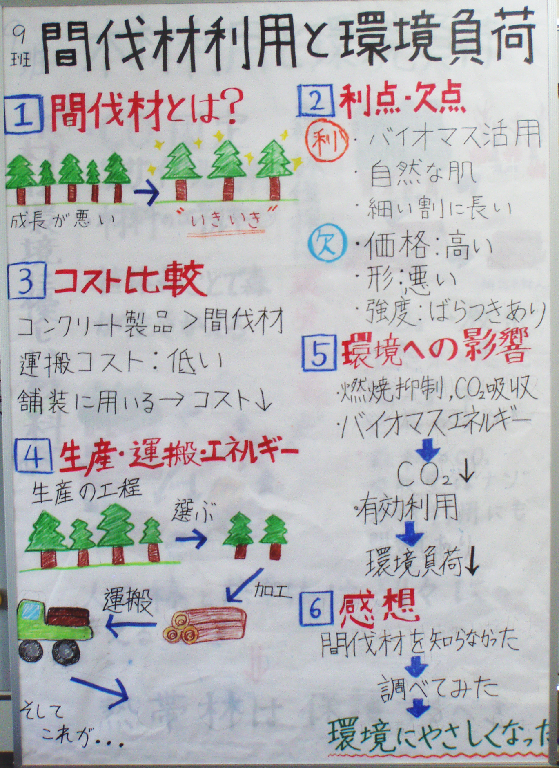 9班
間伐材利用と環境負荷
1 間伐材とは?
成長が悪い
"いきいき"
2 利点・欠点
利 ・バイオマス活用
・自然な肌
・細い割に長い
欠 ・価格:高い
・形:悪い
・強度:ばらつきあり
3 コスト比較
コンクリート製品>間伐材
運搬コスト:低い
舗装に用いる→コスト↓
4 生産・運搬・エネルギー
生産の工程
選ぶ
加工
運搬
そして
これが...
5 環境への影響
・燃焼抑制,CO₂吸収
・バイオマスエネルギー
CO₂↓
・有効利用
環境負荷↓
6 感想
間伐材を知らなかった
調べてみた
環境にやさしくなった